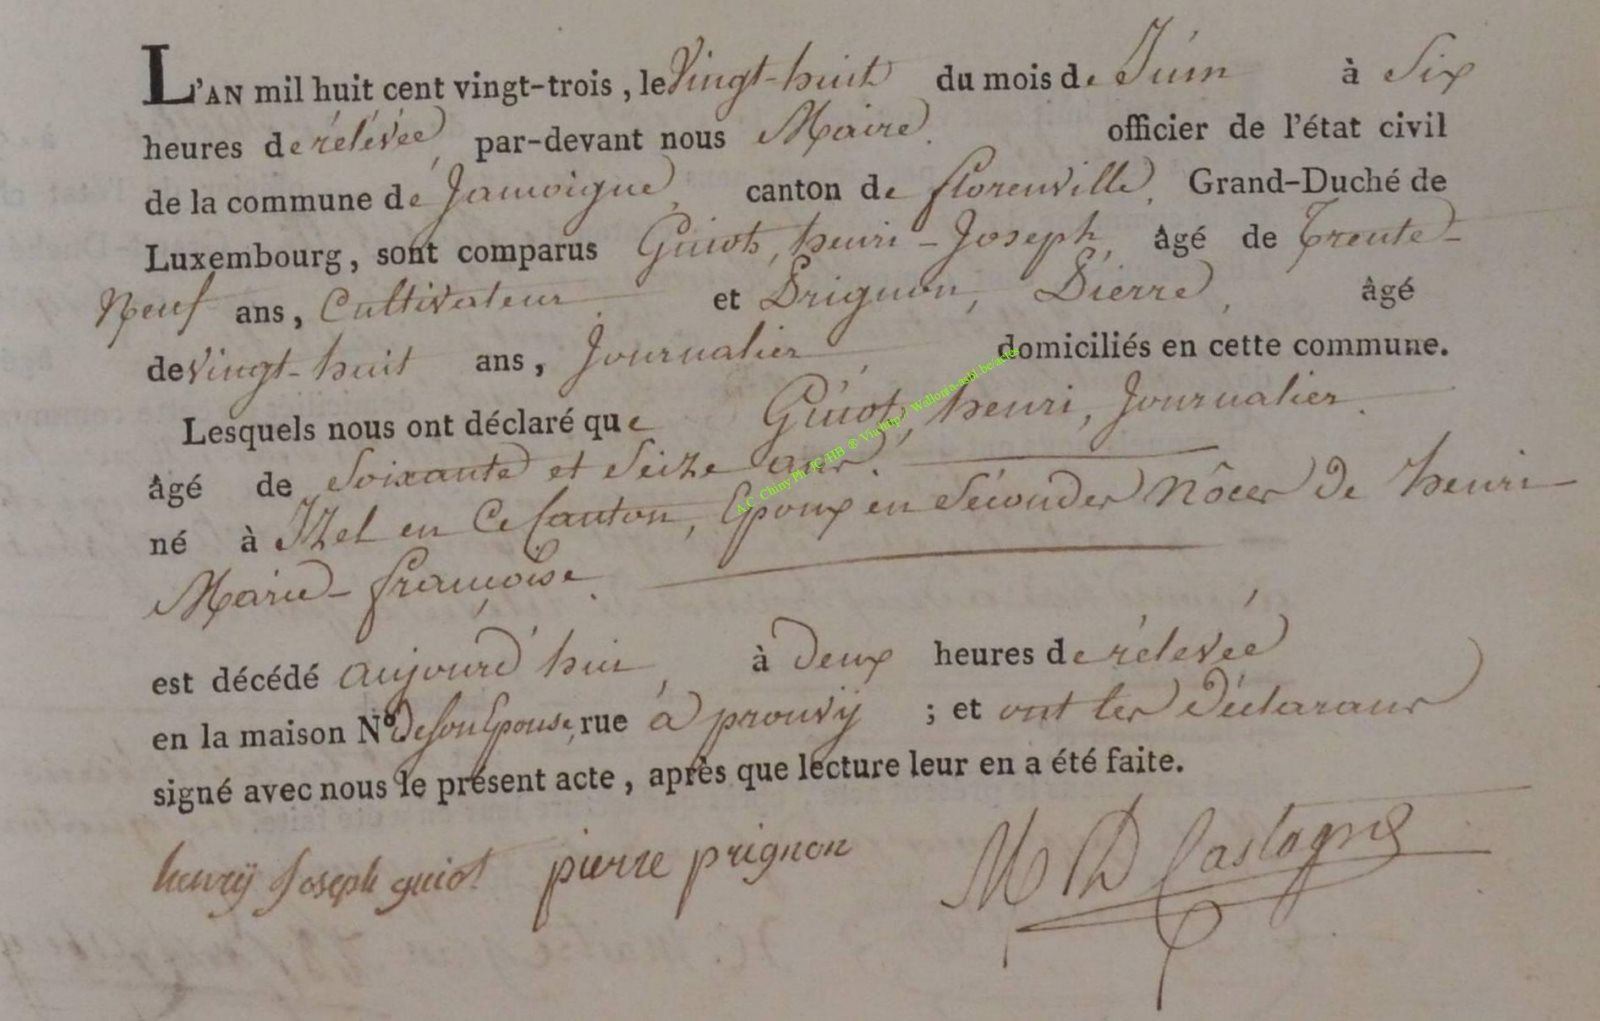 L'AN mil huit cent vingt-trois, le Vingt-huit du mois de Juin à Six
heures de rélévée, par-devant nous Maire. officier de l'état civil
de la commune de Jamoigne, canton de florenville, Grand-Duché de
Luxembourg, sont comparus Guiot, henri-Joseph, âgé de Trente-
Neuf ans, Cultivateur et Prignon, Pierre, âgé
de Vingt-huit ans, Journalier, domiciliés en cette commune.
Lesquels nous ont déclaré que Guiot, henri, Journalier.
âgé de Soixante et Seize ans.
né à Izel en Ce Canton, Epoux en Sécondes Nôces de henri
Marie-françoise.
est décédé aujourd'hui, à Deux heures de rélévée
en la maison N.º De son Epouse, rue à prouvÿ ; et ont les Déclarans
signé avec nous le présent acte, après que lecture leur en a été faite.
henrÿ Joseph guiot pierre prignon M D Castagne
A.C Chiny Ph JC/HB ® Via http:// Wallonia-asbl.be/actes